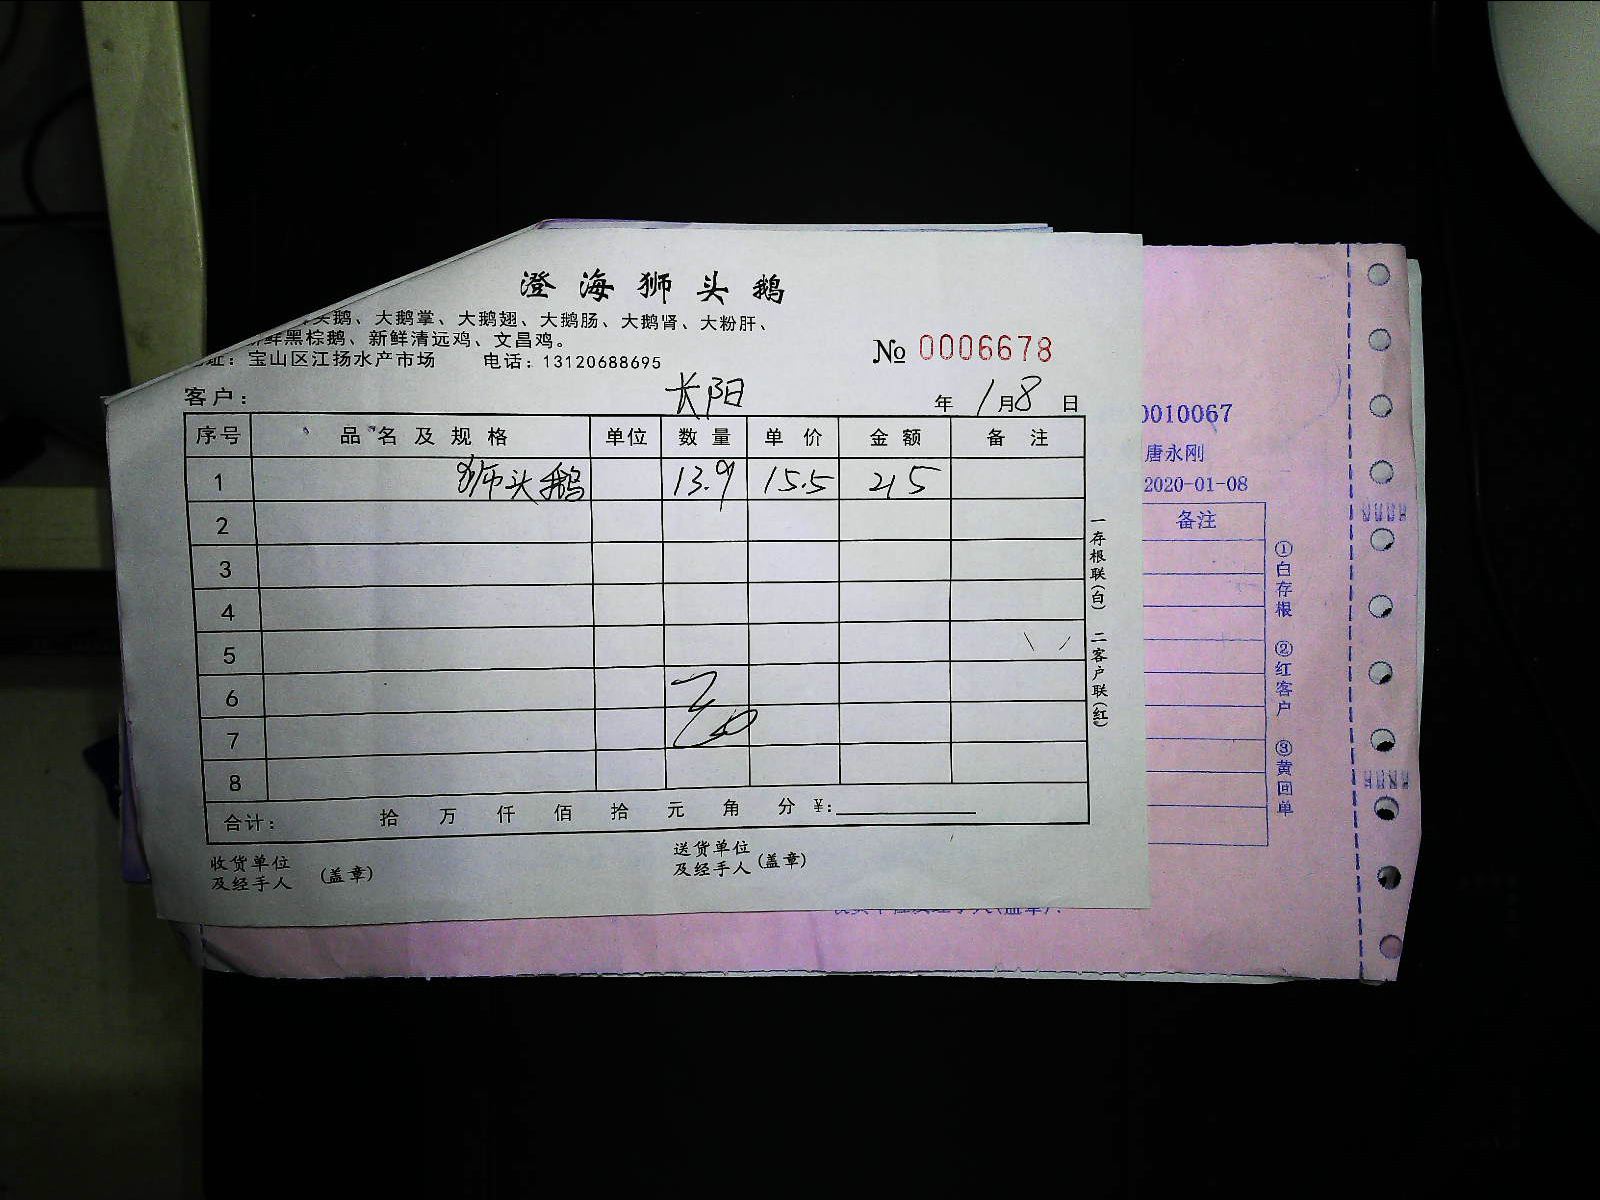 澄海狮头鹅
头鹅、大鹅掌、大鹅翅、大鹅肠、大鹅肾、大粉肝、
鲜黑棕鹅、新鲜清远鸡、文昌鸡。
址：宝山区江扬水产市场 电话：13120688695
№ 0006678
客户： 长阳 年 1月8日
序号 品名及规格 单位 数量 单价 金额 备注
1 狮头鹅 13.9 15.5 215
2
3
4
5
6
7
8
合计： 拾 万 仟 佰 拾 元 角 分 ¥：
收货单位
及经手人 (盖章)
送货单位
及经手人 (盖章)
一存根联(白) 二客户联(红)
0010067
唐永刚
2020-01-08
备注
①白存根 ②红客户 ③黄回单